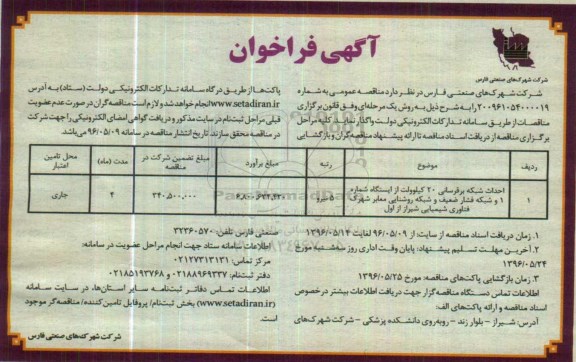 آگهی فراخوان
شرکت شهرک‌های صنعتی فارس
شرکت شهرک‌های صنعتی فارس در نظر دارد مناقصه عمومی به شماره
۲۰۰۹۶۱۰۵۴۰۰۰۰۱۹ را به شرح ذیل به روش یک مرحله‌ای وفق قانون برگزاری
مناقصات از طریق سامانه تدارکات الکترونیکی دولت واگذار نماید. کلیه مراحل
برگزاری مناقصه از دریافت اسناد مناقصه تا ارائه پیشنهاد مناقصه‌گران و بازگشایی
پاکت‌ها از طریق درگاه سامانه تدارکات الکترونیکی دولت (ستاد) به آدرس
www.setadiran.ir انجام خواهد شد و لازم است مناقصه‌گران در صورت عدم عضویت
قبلی مراحل ثبت‌نام در سایت مذکور و دریافت گواهی امضای الکترونیکی را جهت شرکت
در مناقصه محقق سازند. تاریخ انتشار مناقصه در سامانه ۹۶/۰۵/۰۹ می‌باشد.
ردیف موضوع رتبه مبلغ برآورد مبلغ تضمین شرکت در مناقصه مدت (ماه) محل تامین اعتبار
۱ احداث شبکه برقرسانی ۲۰ کیلوولت از ایستگاه شماره ۱ و شبکه فشار ضعیف و شبکه روشنایی معابر شهرک فناوری شیمیایی شیراز از اول ۵ نیرو ۳۴۰,۵۰۰,۰۰۰ ۴ جاری
۱. زمان دریافت اسناد مناقصه از سایت: از ۹۶/۰۵/۰۹ لغایت ۱۳۹۶/۰۵/۱۴
۲. آخرین مهلت تسلیم پیشنهاد: پایان وقت اداری روز سه‌شنبه مورخ
۱۳۹۶/۰۵/۲۴
۳. زمان بازگشایی پاکت‌های مناقصه: مورخ ۱۳۹۶/۰۵/۲۵
اطلاعات تماس دستگاه مناقصه‌گزار جهت دریافت اطلاعات بیشتر در خصوص
اسناد مناقصه و ارائه پاکت‌های الف:
آدرس: شیراز – بلوار زند – روبه‌روی دانشکده پزشکی – شرکت شهرک‌های
صنعتی فارس تلفن: ۳۲۳۶۰۵۷۰
اطلاعات تماس سامانه ستاد جهت انجام مراحل عضویت در سامانه:
مرکز تماس: ۰۲۱۲۷۳۱۳۱۳۱
دفتر ثبت‌نام: ۰۲۱۸۸۹۶۹۷۳۷ و ۰۲۱۸۵۱۹۳۷۶۸
اطلاعات تماس دفاتر ثبت‌نامه سایر استان‌ها، در سایت سامانه
(www.setadiran.ir) بخش ثبت‌نام/ پروفایل تامین‌کننده/ مناقصه‌گر موجود
است.
شرکت شهرک‌های صنعتی فارس